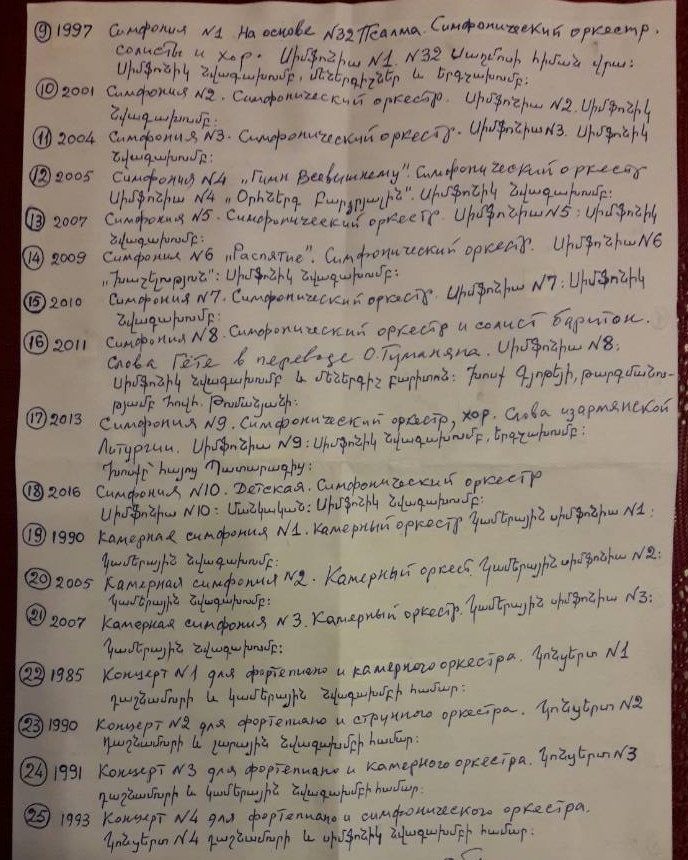 ⑨ 1997 Симфония N1. На основе N32 Псалма. Симфонический оркестр.
солисты и хор. Սիմֆոնիա N1. N32 Սաղմոսի հիման վրա:
Սիմֆոնիկ նվագախումբ, մեներգիչներ և երգչախումբ:
⑩ 2001 Симфония N2. Симфонический оркестр. Սիմֆոնիա N2. Սիմֆոնիկ
նվագախումբ:
⑪ 2004 Симфония N3. Симфонический оркестр. Սիմֆոնիա N3. Սիմֆոնիկ
նվագախումբ:
⑫ 2005 Симфония N4 „Гимн Всевышнему". Симфонический оркестр
Սիմֆոնիա N4 „Օրհներգ Բարձրյալին". Սիմֆոնիկ նվագախումբ:
⑬ 2007 Симфония N5. Симфонический оркестр. Սիմֆոնիա N5: Սիմֆոնիկ
նվագախումբ:
⑭ 2009 Симфония N6 „Распятие". Симфонический оркестр. Սիմֆոնիա N6
„Խաչելություն": Սիմֆոնիկ նվագախումբ:
⑮ 2010 Симфония N7. Симфонический оркестр. Սիմֆոնիա N7: Սիմֆոնիկ
նվագախումբ:
⑯ 2011 Симфония N8. Симфонический оркестр и солист баритон.
Слова Гёте в переводе О.Туманяна. Սիմֆոնիա N8:
Սիմֆոնիկ նվագախումբ և մեներգիչ բարիտոն: Խոսք Գյոթեի, թարգմանու-
թյամբ Հովհ. Թումանյանի:
⑰ 2013 Симфония N9. Симфонический оркестр, хор. Слова из армянской
Литургии. Սիմֆոնիա N9: Սիմֆոնիկ նվագախումբ, երգչախումբ:
Խոսքը՝ հայոց Պատարագից:
⑱ 2016 Симфония N10. Детская. Симфонический оркестр
Սիմֆոնիա N10: Մանկական: Սիմֆոնիկ նվագախումբ:
⑲ 1990 Камерная симфония N1. Камерный оркестр Կամերային սիմֆոնիա N1:
Կամերային նվագախումբ:
⑳ 2005 Камерная симфония N2. Камерный оркест. Կամերային սիմֆոնիա N2:
Կամերային նվագախումբ:
㉑ 2007 Камерная симфония N3. Камерный оркестр. Կամերային սիմֆոնիա N3:
Կամերային նվագախումբ:
㉒ 1985 Концерт N1 для фортепиано и камерного оркестра. Կոնցերտ N1
դաշնամուրի և կամերային նվագախմբի համար:
㉓ 1990 Концерт N2 для фортепиано и струнного оркестра. Կոնցերտ N2
դաշնամուրի և լարային նվագախմբի համար:
㉔ 1991 Концерт N3 для фортепиано и камерного оркестра. Կոնցերտ N3
դաշնամուրի և կամերային նվագախմբի համար:
㉕ 1993 Концерт N4 для фортепиано и симфонического оркестра.
Կոնցերտ N4 դաշնամուրի և սիմֆոնիկ նվագախմբի համար: